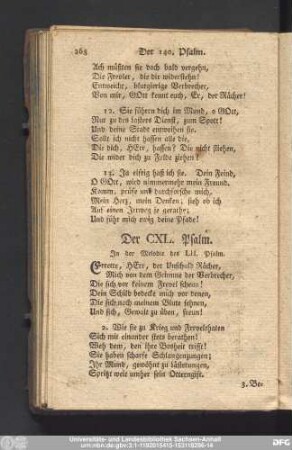 268 Der 140. Psalm.
Ach müßten sie doch bald vergehn,
Die Frevler, die dir widerstehn!
Entweicht, blutgierige Verbrecher,
Von mir, GOtt kennt euch, Er, der Rächer!
12. Sie führen dich im Mund, o GOtt,
Nur zu des Lasters Dienst, zum Spott!
Und deine Stadt entweihen sie.
Sollt ich nicht hassen alle die,
Die dich, HErr, hassen? Die nicht fliehen,
Die wider dich zu Felde ziehen?
13. Ja eifrig haß ich sie. Dein Feind,
O GOtt, wird nimmermehr mein Freund.
Komm, prüfe und durchforsche mich,
Mein Herz, mein Denken; sieh ob ich
Auf einen Irrweg je gerathe;
Und führ mich ewig deine Pfade!
Der CXL. Psalm.
In der Melodie des LII. Psalm.
Errette, HErr, der Unschuld Rächer,
Mich von dem Grimme der Verbrecher,
Die sich vor keinem Frevel scheun!
Dein Schild bedecke mich vor denen,
Die sich nach meinem Blute sehnen,
Und sich, Gewalt zu üben, freun!
2. Wie sie zu Krieg und Frevelthaten
Sich mit einander stets berathen!
Weh dem, den ihre Bosheit trifft!
Sie haben scharfe Schlangenzungen;
Ihr Mund, gewöhnt zu Lästerungen,
Sprützt weit umher sein Otterngift.
3. Be-
Universitäts- und Landesbibliothek Sachsen-Anhalt
urn:nbn:de:gbv:3:1-1192015415-153116286-14
DFG